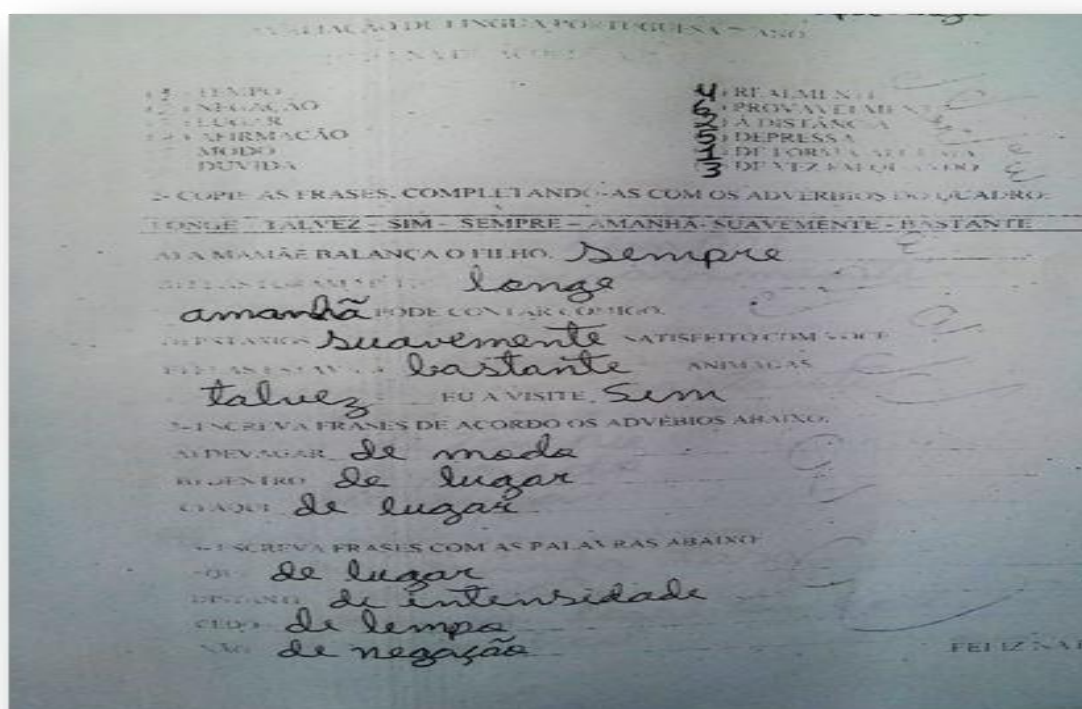 AVALIAÇÃO DE LINGUA PORTUGUESA - ANO
TEMPO
NEGAÇÃO
LUGAR
AFIRMAÇÃO
MODO
DUVIDA
4 REALMENTE
6 PROVAVELMENTE
2 À DISTÂNCIA
5 DEPRESSA
1 DE FORMA ALGUMA
3 DE VEZ EM QUANDO
2- COPIE AS FRASES, COMPLETANDO-AS COM OS ADVÉRBIOS DO QUADRO.
LONGE - TALVEZ - SIM - SEMPRE - AMANHÃ - SUAVEMENTE - BASTANTE
A) A MAMÃE BALANÇA O FILHO. Sempre
longe
amanhã PODE CONTAR COMIGO.
D) ESTAMOS suavemente SATISFEITO COM VOCE
bastante ANIMADAS
talvez EU A VISITE. Sim
3- ESCREVA FRASES DE ACORDO OS ADVÉBIOS ABAIXO.
A) DEVAGAR de modo
B) DENTRO de lugar
C) AQUI de lugar
4- ESCREVA FRASES COM AS PALAVRAS ABAIXO
de lugar
de intensidade
CEDO de tempo
NÃO de negação
FELIZ